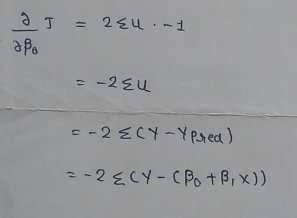 ∂/∂β₀ J = 2ΣU · -1
= -2ΣU
= -2 Σ(Y - Ypred)
= -2 Σ(Y - (β₀ + β₁X))